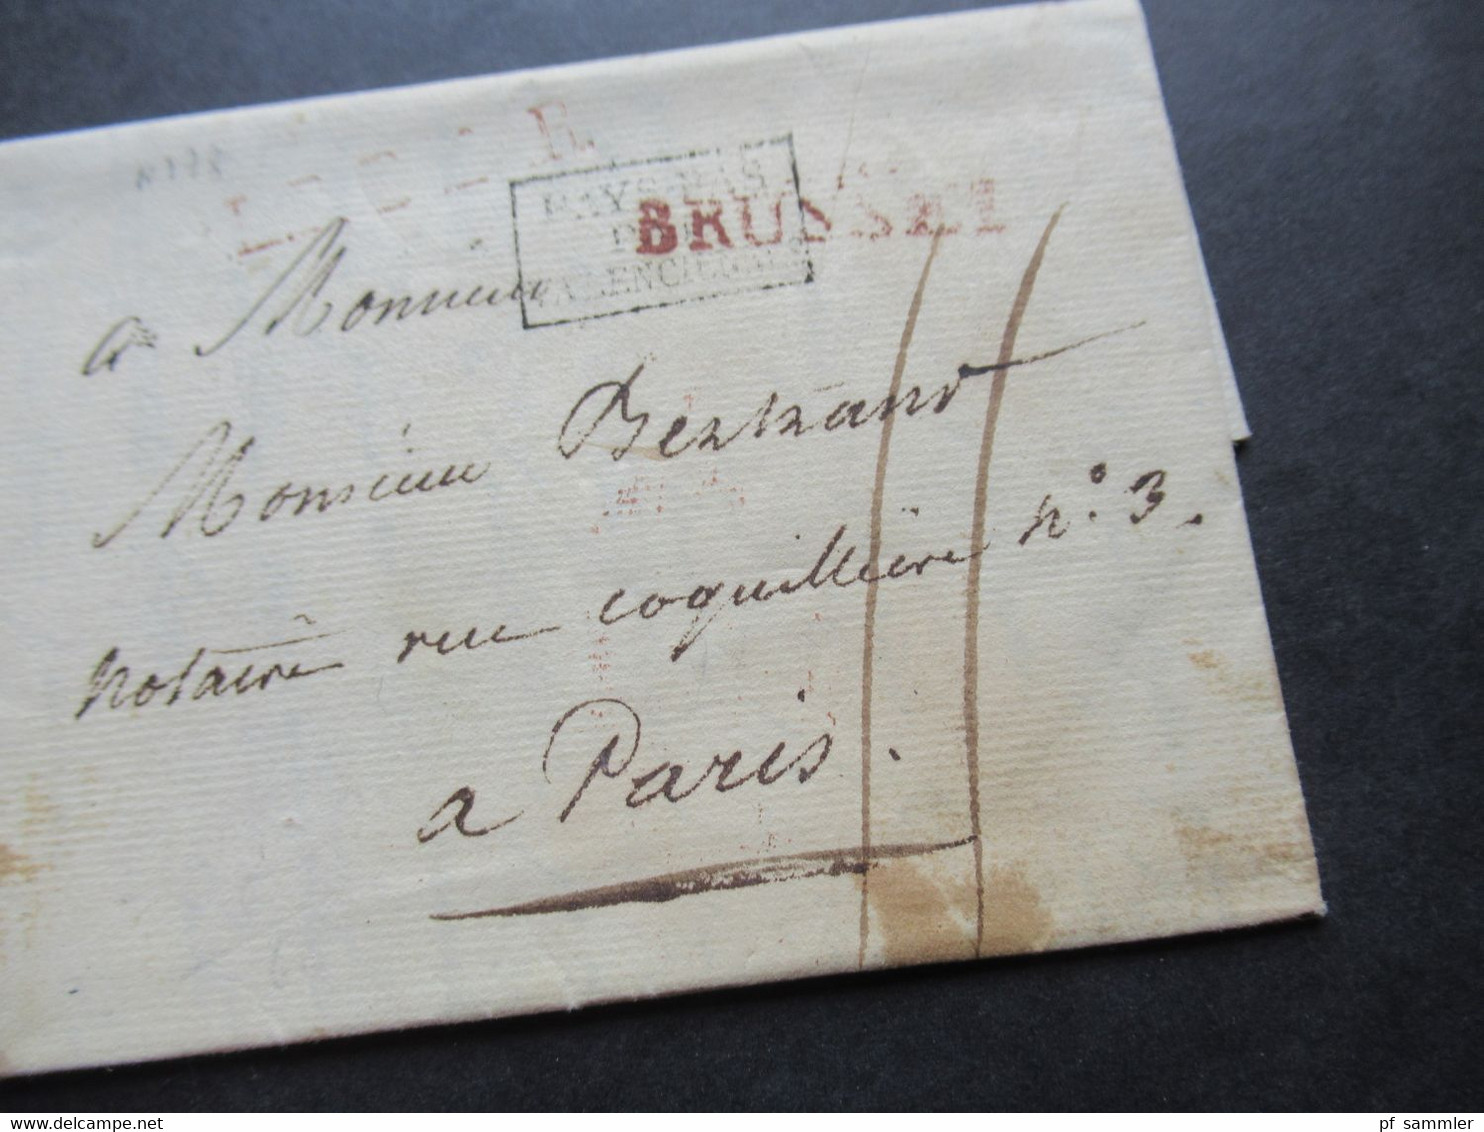 BRUXSEL
PAYS-BAS
PAR
VALENCIENNES
a Monsieur
Monsieur Bertrand
notaire rue coquillière n.° 3.
a Paris.
delcampe.net
pf_sammler